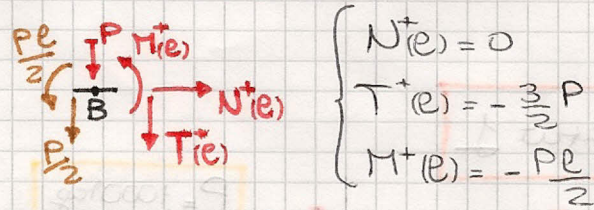 Pℓ/2 P M⁺(ℓ)
B N⁺(ℓ)
P/2 T⁺(ℓ)
N⁺(ℓ) = 0
T⁺(ℓ) = - 3/2 P
M⁺(ℓ) = - Pℓ/2